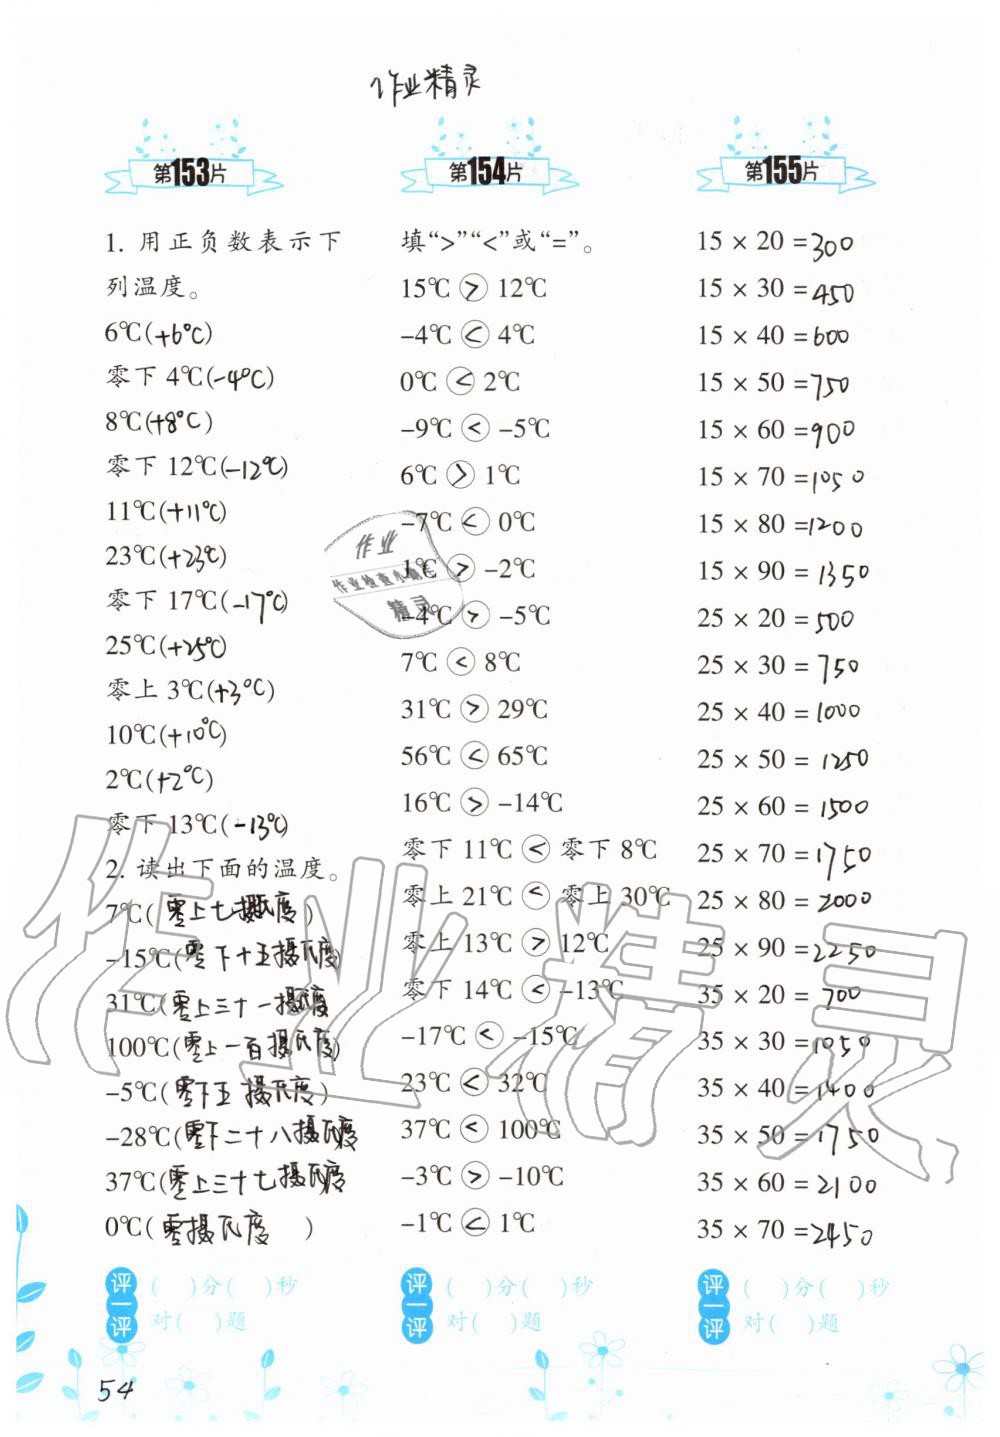 作业精灵
第153片
1. 用正负数表示下
列温度。
6℃(+6℃)
零下 4℃(-4℃)
8℃(+8℃)
零下 12℃(-12℃)
11℃(+11℃)
23℃(+23℃)
零下 17℃(-17℃)
25℃(+25℃)
零上 3℃(+3℃)
10℃(+10℃)
2℃(+2℃)
零下 13℃(-13℃)
2. 读出下面的温度。
7℃(零上七摄氏度)
-15℃(零下十五摄氏度)
31℃(零上三十一摄氏度
100℃(零上一百摄氏度)
-5℃(零下五摄氏度)
-28℃(零下二十八摄氏度
37℃(零上三十七摄氏度
0℃(零摄氏度)
评一评
( )分( )秒
对( )题
第154片
填“>”“<”或“=”。
15℃ > 12℃
-4℃ < 4℃
0℃ < 2℃
-9℃ < -5℃
6℃ > 1℃
-7℃ < 0℃
1℃ > -2℃
-4℃ > -5℃
7℃ < 8℃
31℃ > 29℃
56℃ < 65℃
16℃ > -14℃
零下 11℃ < 零下 8℃
零上 21℃ < 零上 30℃
零上 13℃ > 12℃
零下 14℃ < -13℃
-17℃ < -15℃
23℃ < 32℃
37℃ < 100℃
-3℃ > -10℃
-1℃ < 1℃
评一评
( )分( )秒
对( )题
第155片
15 × 20 = 300
15 × 30 = 450
15 × 40 = 600
15 × 50 = 750
15 × 60 = 900
15 × 70 = 1050
15 × 80 = 1200
15 × 90 = 1350
25 × 20 = 500
25 × 30 = 750
25 × 40 = 1000
25 × 50 = 1250
25 × 60 = 1500
25 × 70 = 1750
25 × 80 = 2000
25 × 90 = 2250
35 × 20 = 700
35 × 30 = 1050
35 × 40 = 1400
35 × 50 = 1750
35 × 60 = 2100
35 × 70 = 2450
评一评
( )分( )秒
对( )题
作业
精灵
作业精灵
54